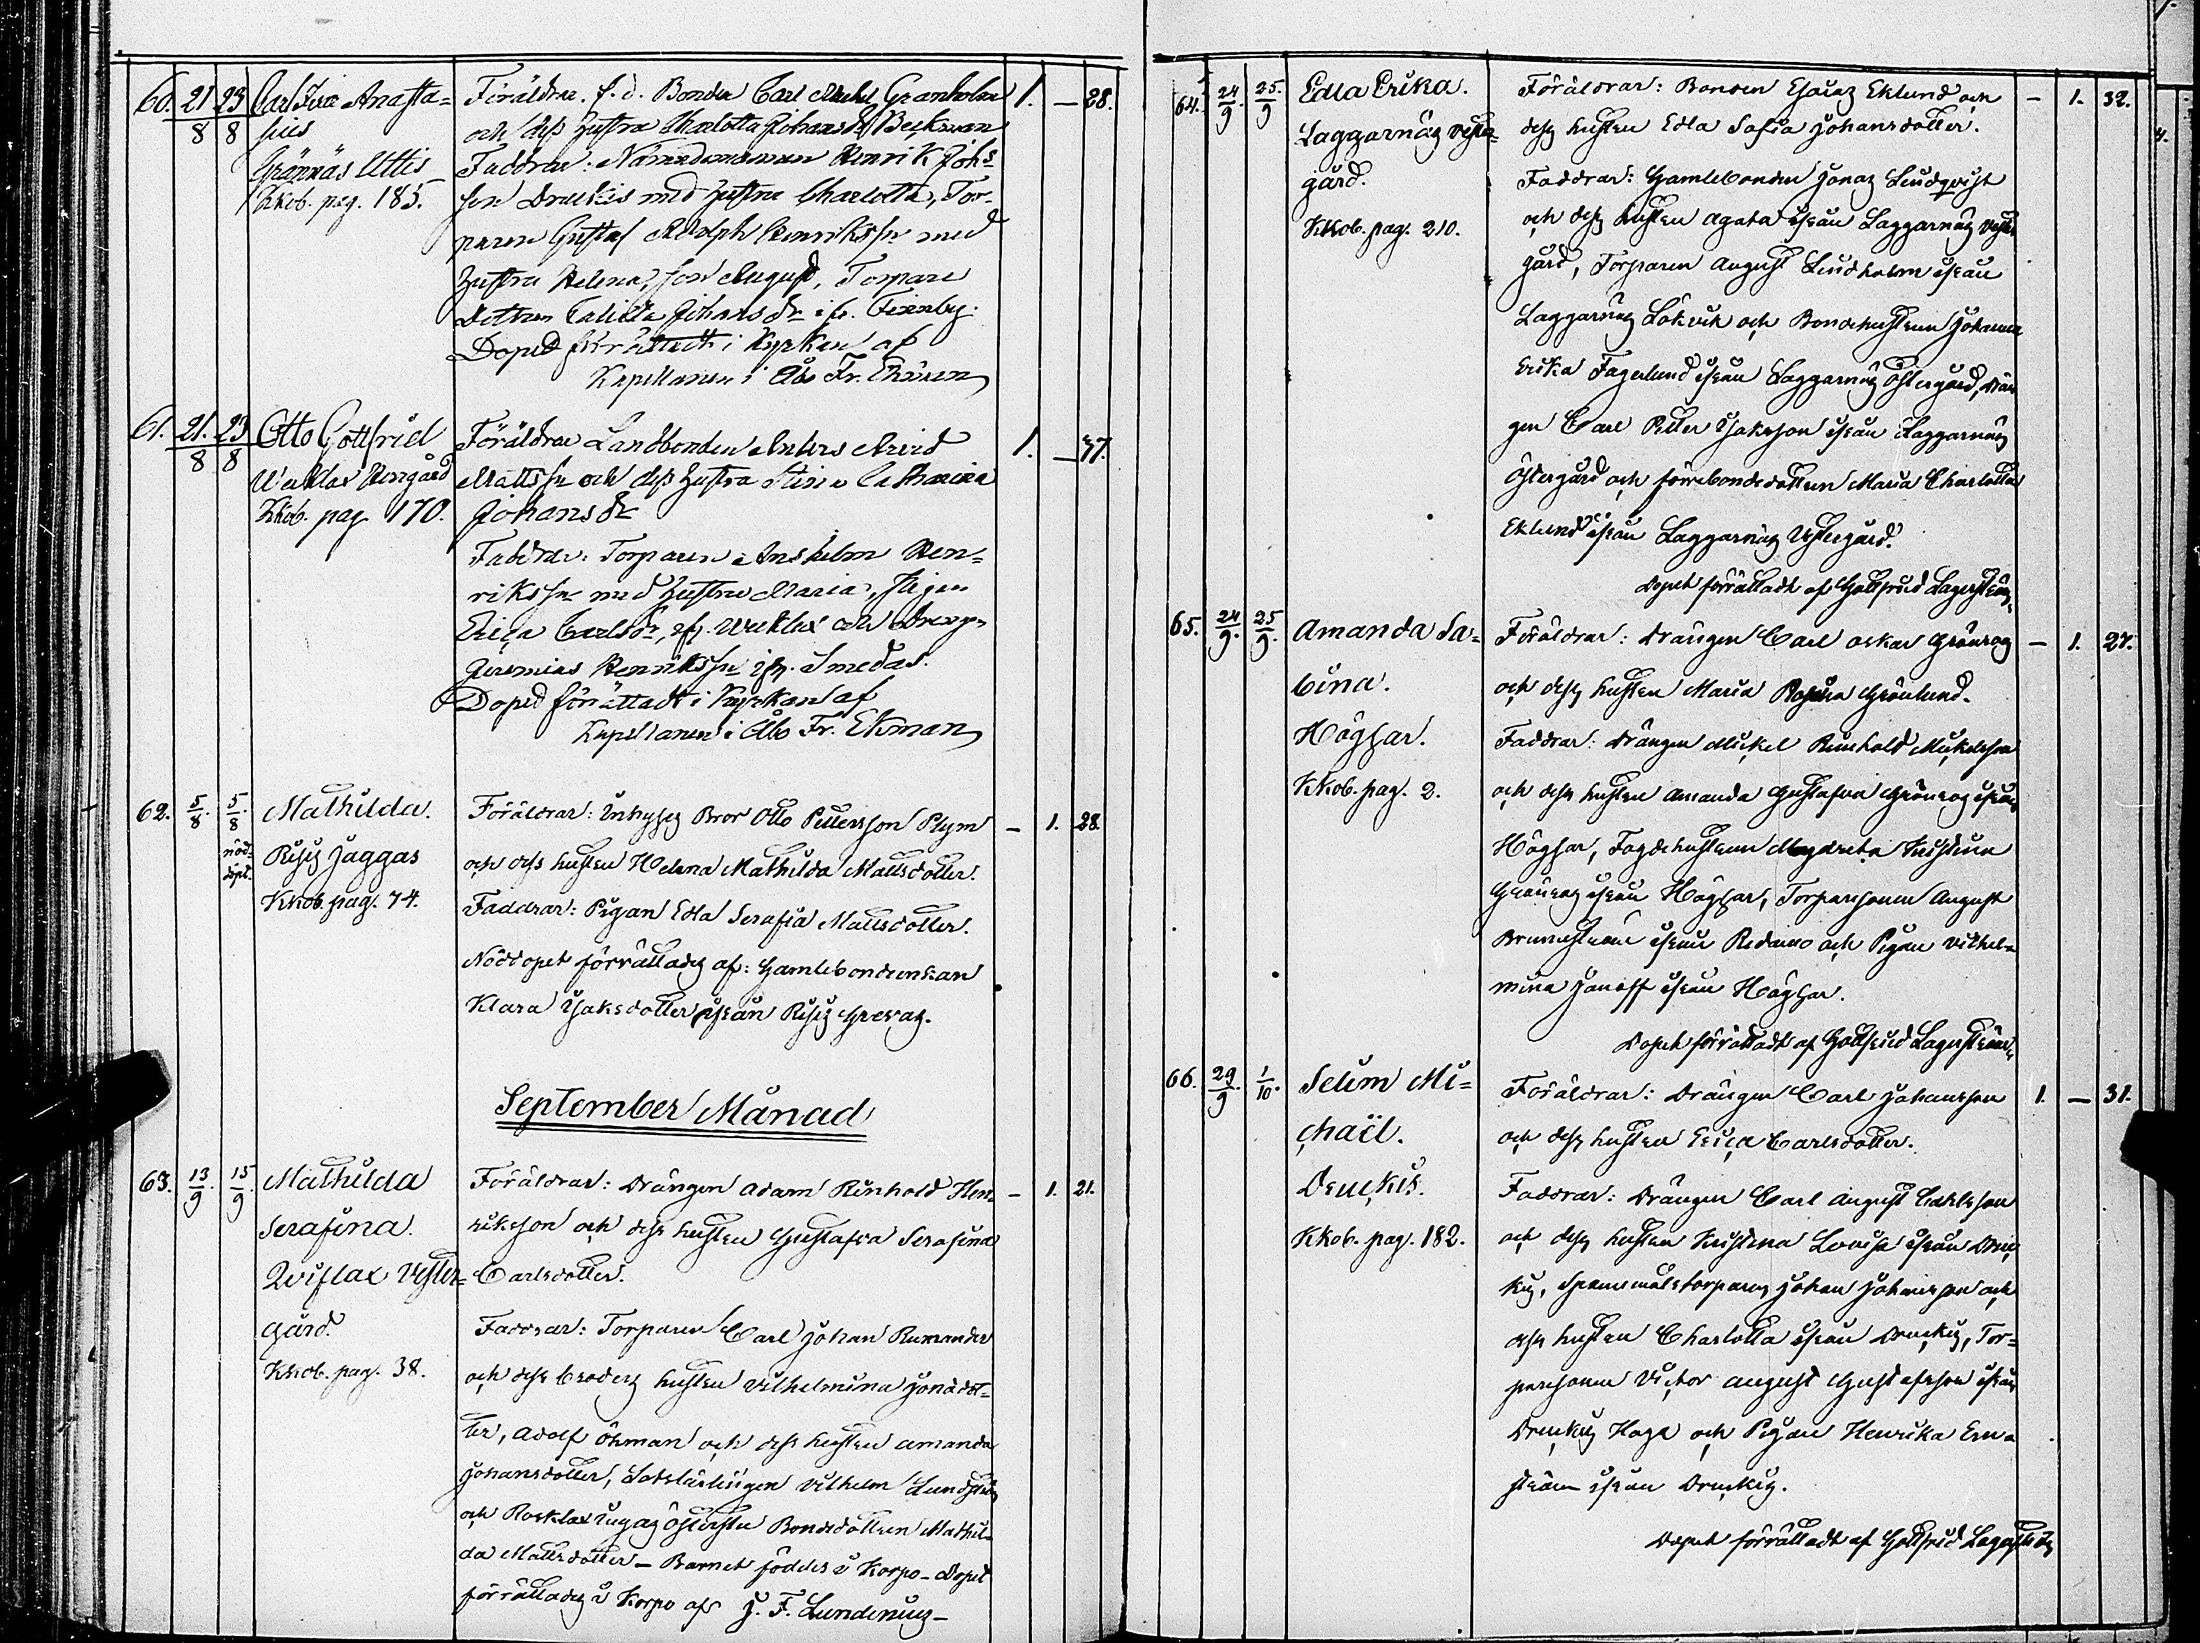 60. 21/8 23/8 Carl Anasta=
sius
Grännäs Uttis
Kkob. pag. 185.
Föräldrar: f. d. Bonden Carl Granholm
och dess hustru Charlotta Johansdr Beckman
Faddrar: Nämndemannen Henrik Johs=
son Druckis med hustru Charlotta, Tor=
paren Gustaf Adolph Henrikssn med
hustru Helena, son August, Torpare
dottren Johansdr i fr. Finnby.
Doped förrättadt i Kyrkan af
Kapellanen i Åbo Fr.
1. — 28.
61. 21/8 23/8 Otto Gottfrid
Wattlax Nergård
Kkob. pag 170.
Föräldrar Landbonden Anders Arvid
Mattssn och dess hustru Stina Catharina
Johansdr
Faddrar: Torparen Anshelm Hen=
rikssn med hustru Maria, Pigan
Erica Carlsdr, och Drengen
Jeremias Henrikssn ifr. Smedas.
Doped förrättadt i Kyrkan af
Kapellanen i Åbo Fr. Ekman
1. — 37.
62. 5/8. 5/8. nöd=
döpt.
Mathilda.
Risis Jaggas
Kkob. pag. 74.
Föräldrar: Inhyses Bror Otto Pettersson Plym
och dess hustru Helena Mathilda Mattsdotter.
Faddrar: Pigan Edla Serafia Mattsdotter.
Nöddopet förrättades af: Gamlebondeenkan
Klara Isaksdotter ifrån Risis Grevas.
— 1. 28.
September Månad
63. 13/9. 15/9. Mathilda
Serafina.
Qviflax Vester=
gård.
Kkob. pag. 38.
Föräldrar: Drängen Adam Rinhold Hen=
riksson och dess hustru Gustafva Serafina
Carlsdotter.
Faddrar: Torparen Carl Johan Rumander
och dess broders hustru Vilhelmina Jonasdot=
ter, Adolf Öhman och dess hustru Amanda
Johansdotter, Lotslärlingen Vilhelm Lundström
och Bondedottern Mathil=
da Mattsdotter — Barnet föddes i Korpo — Dopet
förrättades i Korpo af J. F. —
— 1. 21.
64. 24/9 25/9. Edla Erika.
Laggarnäs Vester=
gård.
Kkob. pag. 210.
Föräldrar: Bonden Esaias Eklund och
dess hustru Edla Sofia Johansdotter.
Faddrar: Gamlebonden Jonas Lindqvist
och dess hustru Agata ifrån Laggarnäs Vester
gård, Torparen August Lindholm ifrån
Laggarnäs Lökvik och Bondehustrun Johanna
Erika Fagerlund ifrån Laggarnäs Östergård, Drän
gen Carl Petter Isaksson ifrån Laggarnäs
Östergård och förrebondedottern Maria Charlotta
Eklund ifrån Laggarnäs Vestergård.
Dopet förrättadt af Gottfrid Lagerström.
— 1. 32.
65. 24/9. 25/9. Amanda Sa=
bina.
Högsar.
Kkob. pag. 2.
Föräldrar: Drängen Carl Oskar Grönroos
och dess hustru Maria Grönlund.
Faddrar: Drängen Mickel Rinhold Mickelsson
och dess hustru Amanda Gustafva Grönroos ifrån
Högsar, Fogdehustrun Margareta Kristina
Grönroos ifrån Högsar, Torparsonen August
Brunnström ifrån och Pigan Vilhel=
mina ifrån Högsar.
Dopet förrättadt af Gottfrid Lagerström.
— 1. 27.
66. 29/9. 1/10. Selim Mi=
chaël.
Druckis.
Kkob. pag. 182.
Föräldrar: Drängen Carl Johansson
och dess hustru Erica Carlsdotter.
Faddrar: Drängen Carl August Carlsson
och dess hustru Kristina Lovisa ifrån Druc
kis, Johan Johansson och
dess hustru Charlotta ifrån Druckis, Tor=
parsonen Victor August Gustafsson ifrån
Druckis Haga och Pigan Henrika Ern=
ström ifrån Druckis.
Dopet förrättadt af Gottfrid Lagerström
1. — 31.